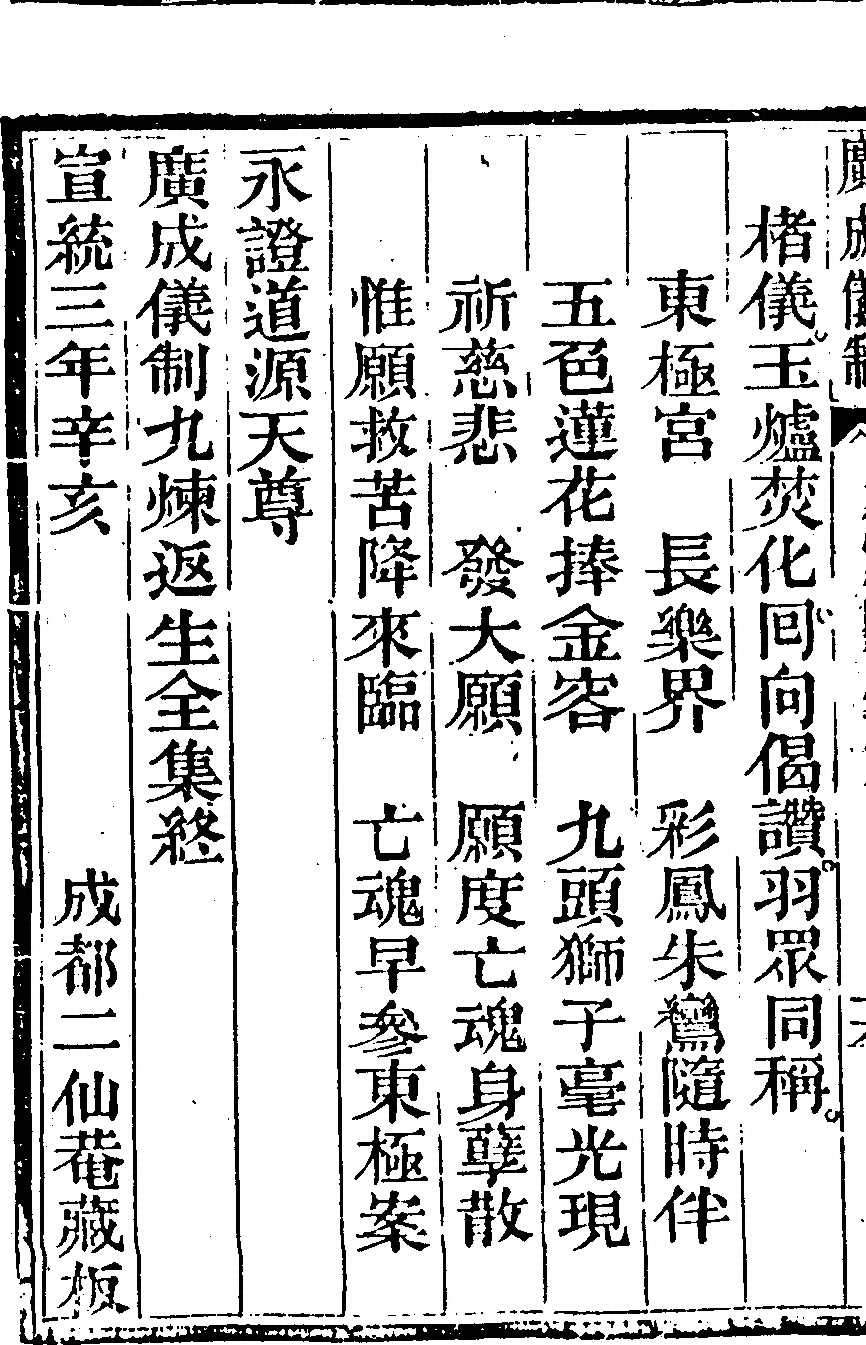 廣成儀制
楮儀玉爐焚化回向偈讚羽眾同稱
東極宮　長樂界　彩鳳朱鸞隨時伴
五色蓮花捧金容　九頭獅子毫光現
祈慈悲　發大願　願度亡魂身孽散
惟願救苦降來臨　亡魂早參東極案
永證道源天尊
廣成儀制九煉返生全集終
宣統三年辛亥　成都二仙菴藏板